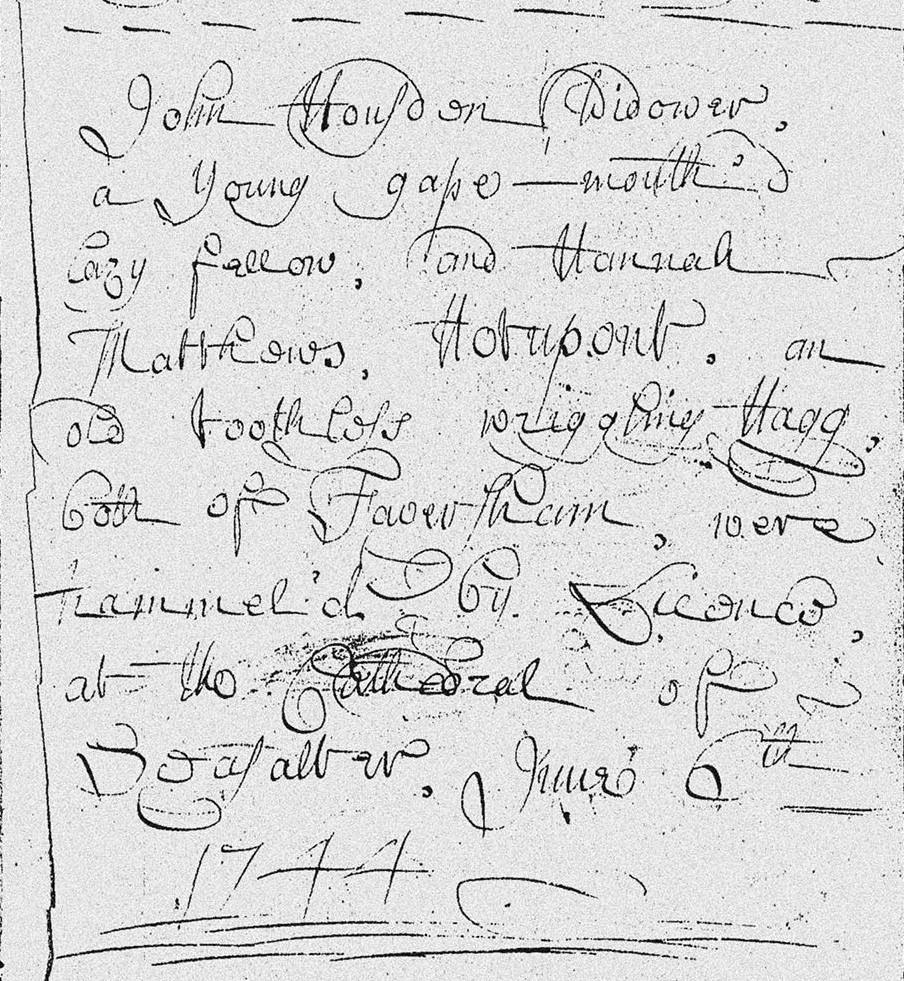 John Housden Widower,
a Young gape-mouth'd
lazy fellow, and Hannah
Matthews, Hotupont, an
old toothless wriggling Hagg,
both of Faversham, were
trammel'd by Licence,
at the Cathedral of
Boughton, June 6th
1744